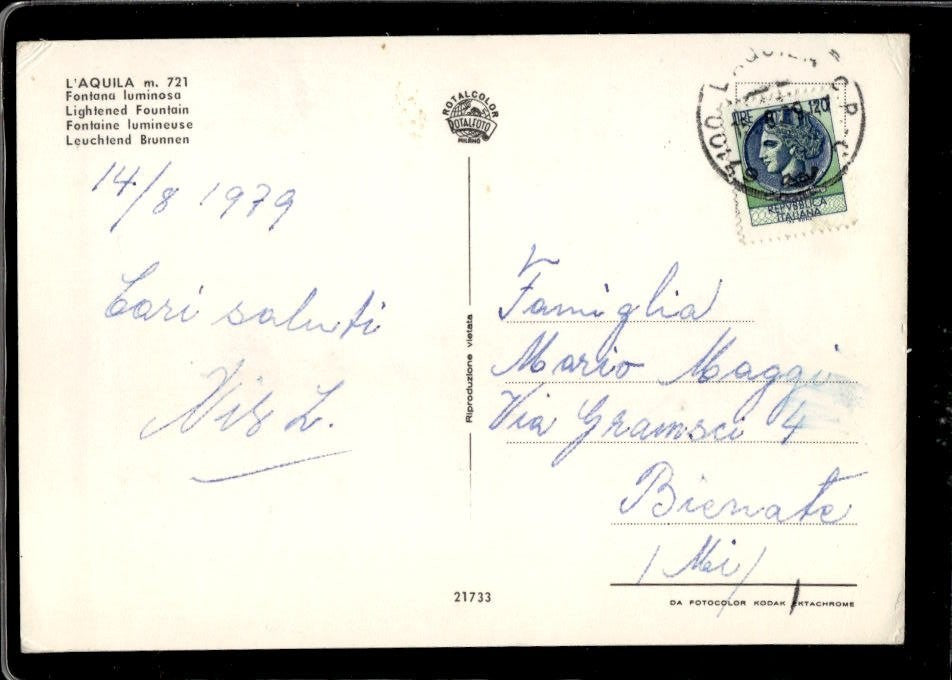 L'AQUILA m. 721
Fontana luminosa
Lightened Fountain
Fontaine lumineuse
Leuchtend Brunnen
14/8 1979
Cari saluti
ROTALCOLOR
ROTALFOTO
MILANO
Riproduzione vietata
67100 L'AQUILA C.P.
LIRE 120
REPVBBLICA
ITALIANA
Famiglia
Mario Maggi
Via Gramsci 4
Bienate
(Mi)
21733
DA FOTOCOLOR KODAK EKTACHROME